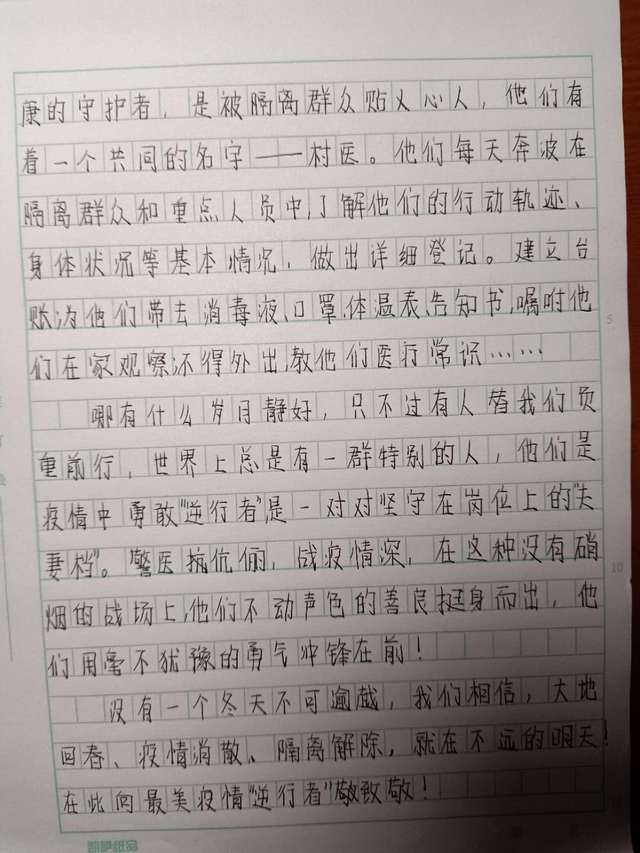 康的守护者，是被隔离群众贴义心人，他们有
着一个共同的名字——村医。他们每天奔波在
隔离群众和重点人员中，了解他们的行动轨迹、
身体状况等基本情况，做出详细登记。建立台
账，为他们带去消毒液、口罩、体温表、告知书，嘱咐他
们在家观察，不得外出，教他们医疗常识……
哪有什么岁月静好，只不过有人替我们负
重前行，世界上总是有一群特别的人，他们是
疫情中勇敢“逆行者”，是一对对坚守在岗位上的“夫
妻档”。警医抗伉俪，战疫情深，在这种没有硝
烟的战场上，他们不动声色的善良挺身而出，他
们用毫不犹豫的勇气冲锋在前！
没有一个冬天不可逾越，我们相信，大地
回春、疫情消散、隔离解除，就在不远的明天！
在此向最美疫情“逆行者”致敬！
5
10